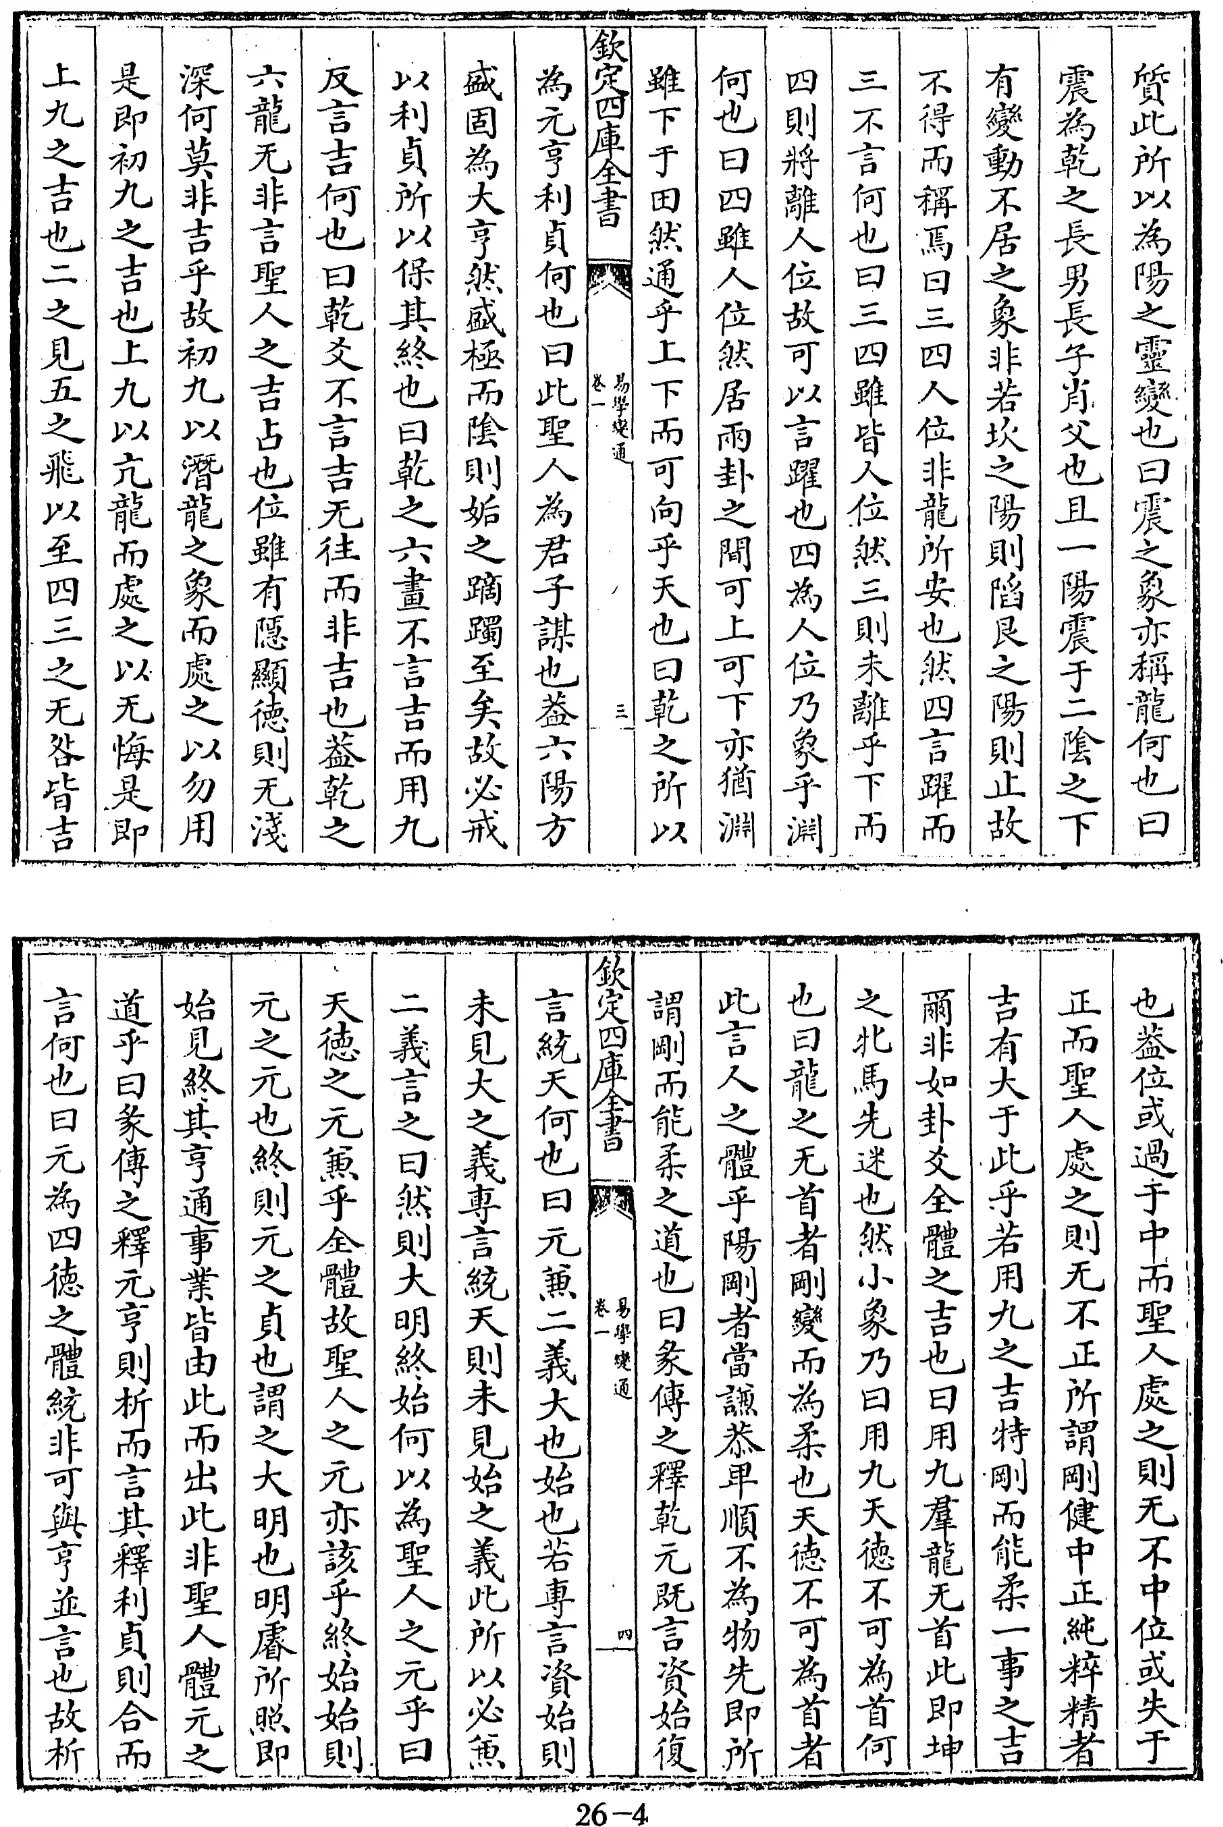 質此所以為陽之靈變也曰震之象亦稱龍何也曰
震為乾之長男長子肖父也且一陽震于二陰之下
有變動不居之象非若坎之陽則陷艮之陽則止故
不得而稱焉曰三四人位非龍所安也然四言躍而
三不言何也曰三四雖皆人位然三則未離乎下而
四則將離人位故可以言躍也四為人位乃象乎淵
何也曰四雖人位然居兩卦之間可上可下亦猶淵
雖下于田然通乎上下而可向乎天也曰乾之所以
欽定四庫全書
易學變通
卷一
三
為元亨利貞何也曰此聖人為君子謀也葢六陽方
盛固為大亨然盛極而陰則姤之蹢躅至矣故必戒
以利貞所以保其終也曰乾之六畫不言吉而用九
反言吉何也曰乾爻不言吉无往而非吉也葢乾之
六龍无非言聖人之吉占也位雖有隱顯徳則无淺
深何莫非吉乎故初九以潛龍之象而處之以勿用
是即初九之吉也上九以亢龍而處之以无悔是即
上九之吉也二之見五之飛以至四三之无咎皆吉
也葢位或過于中而聖人處之則无不中位或失于
正而聖人處之則无不正所謂剛健中正純粹精者
吉有大于此乎若用九之吉特剛而能柔一事之吉
爾非如卦爻全體之吉也曰用九羣龍无首此即坤
之牝馬先迷也然小象乃曰用九天徳不可為首何
也曰龍之无首者剛變而為柔也天徳不可為首者
此言人之體乎陽剛者當謙恭卑順不為物先即所
謂剛而能柔之道也曰彖傳之釋乾元既言資始復
欽定四庫全書
易學變通
卷一
四
言統天何也曰元兼二義大也始也若專言資始則
未見大之義專言統天則未見始之義此所以必兼
二義言之曰然則大明終始何以為聖人之元乎曰
天徳之元兼乎全體故聖人之元亦該乎終始始則
元之元也終則元之貞也謂之大明也明睿所照即
始見終其亨通事業皆由此而出此非聖人體元之
道乎曰彖傳之釋元亨則析而言其釋利貞則合而
言何也曰元為四徳之體統非可與亨並言也故析
26-4